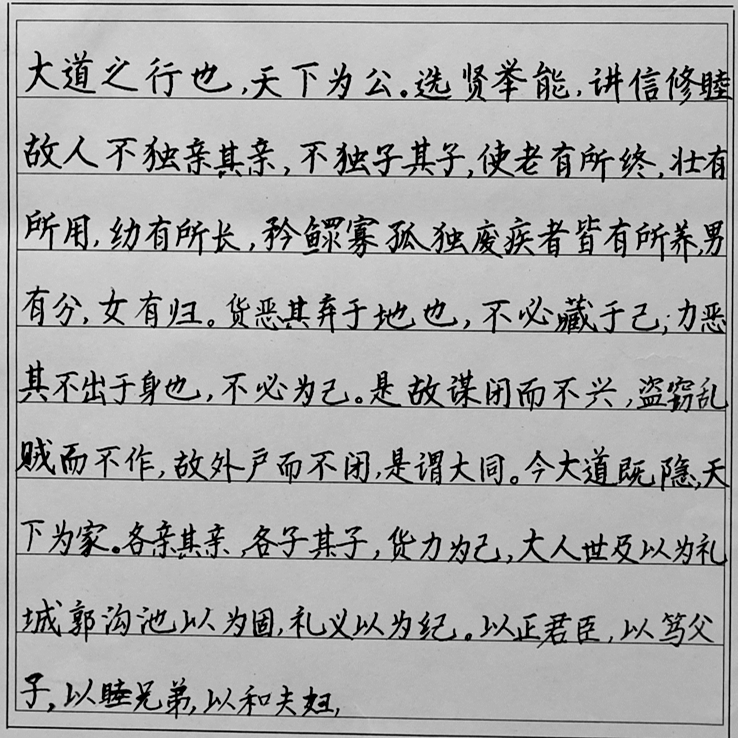 大道之行也,天下为公。选贤举能,讲信修睦
故人不独亲其亲,不独子其子,使老有所终,壮有
所用,幼有所长,矜鳏寡孤独废疾者皆有所养,男
有分,女有归。货恶其弃于地也,不必藏于己;力恶
其不出于身也,不必为己。是故谋闭而不兴,盗窃乱
贼而不作,故外户而不闭,是谓大同。今大道既隐,天
下为家。各亲其亲,各子其子,货力为己,大人世及以为礼
城郭沟池以为固,礼义以为纪。以正君臣,以笃父
子,以睦兄弟,以和夫妇,